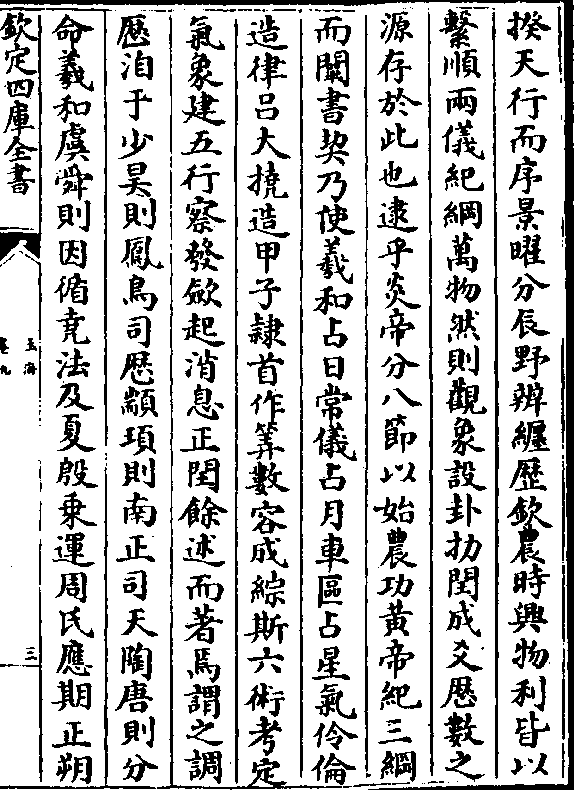 揆天行而序景曜分辰野辨纏歴欽農時興物利皆以
繫順兩儀紀綱萬物然則觀象設卦扐閏成爻歴數之
源存於此也逮乎炎帝分八節以始農功黄帝紀三綱
而闡書契乃使羲和占日常儀占月車區占星氣伶倫
造律吕大撓造甲子隷首作筭數容成綜斯六術考定
氣象建五行察發歛起消息正閏餘述而著焉謂之調
歴洎于少昊則鳳鳥司歴顓頊則南正司天陶唐則分
命羲和虞舜則因循堯法及夏殷乗運周氏應期正朔
欽定四庫全書
玉海
卷九
三